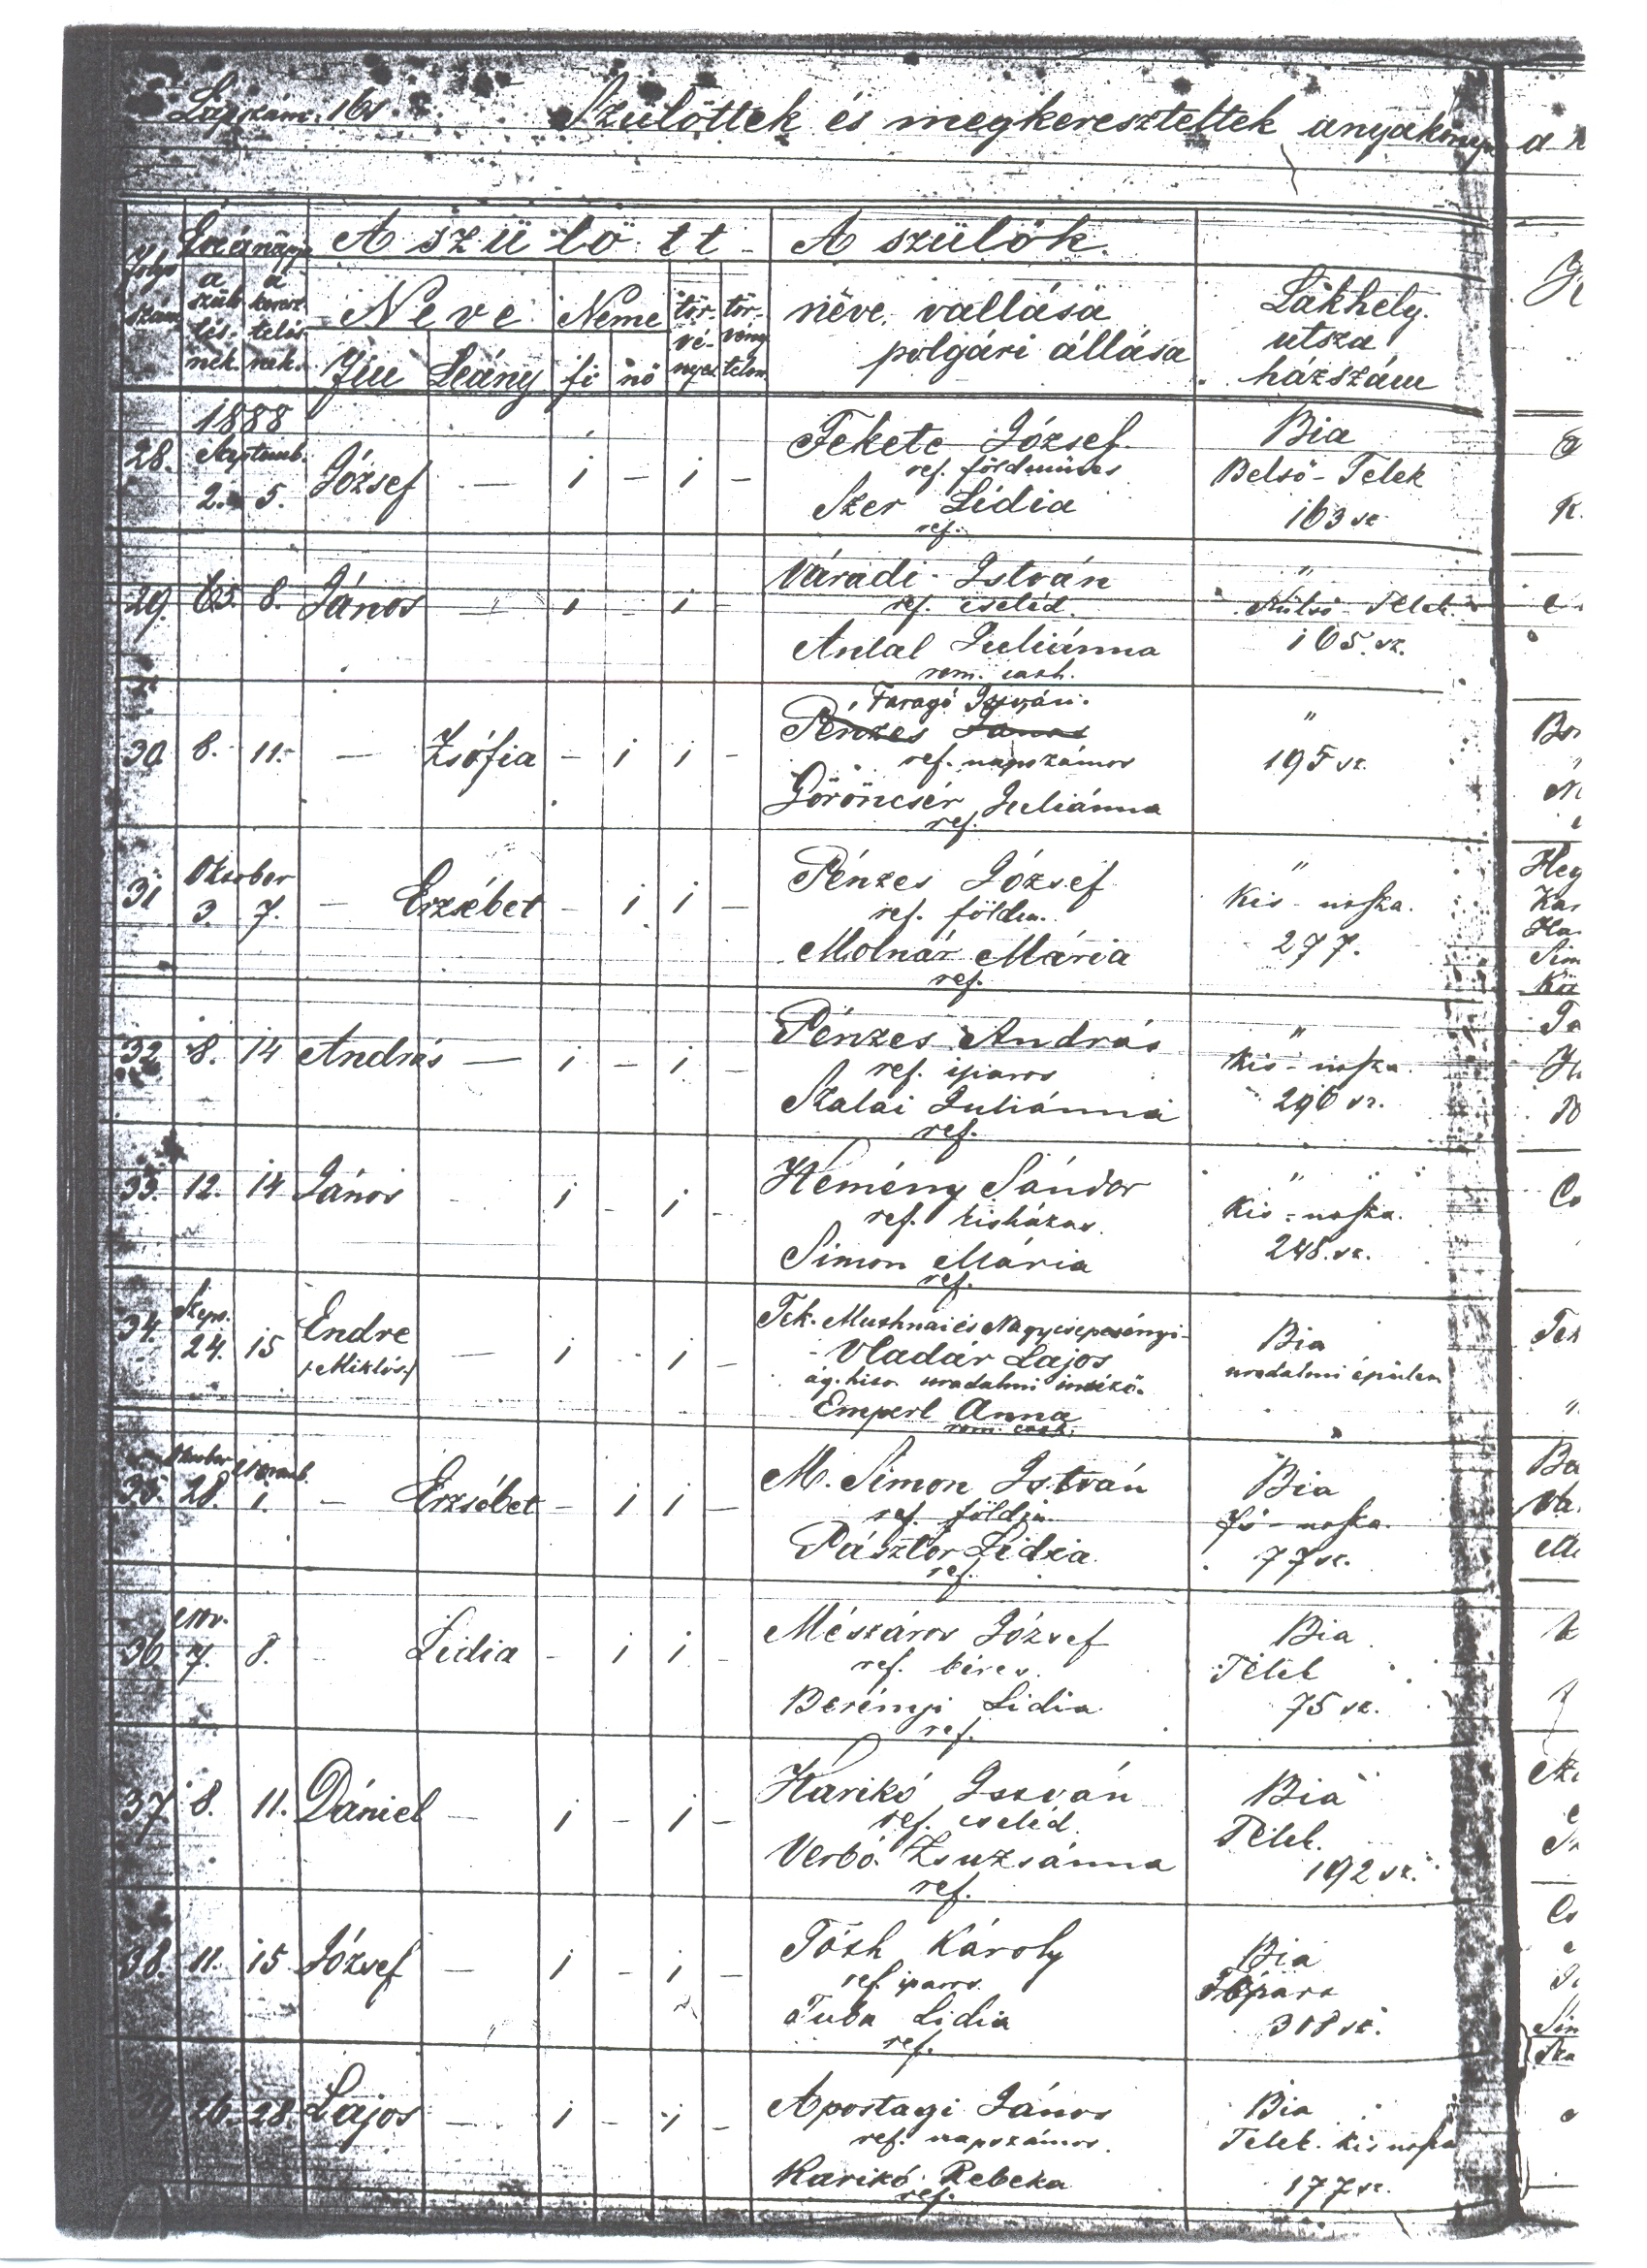 Lapszám. 161
Szülöttek és megkereszteltek anyakönyve a
A szülött
A szülők.
Folyó szám
a szüle-tés-nek.
a keresz-telés-nek.
Neve
Neme
tör-vé-nyes
tör-vény-telen
neve, vallása
polgári állása
Lakhely.
utsza
házszám
Fiu Leány fi nö
1888
Septemb.
28. 2. 5. József — i — i —
Fekete József
ref. földmives
Szer Lidia
ref.
Bia
Belső-Telek
163 sz
29. 8. János — i — i —
Váradi István
ref. cseléd.
Antal Juliánna
rom. cath.
"
Külső-Telek
165. sz.
30. 8. 11. — Zsófia — i i —
Faragó István.
Pénzes János
ref. napszámos
Göröncsér Juliánna
ref.
"
195 sz.
Oktober
31 3. 7. — Erzsébet — i i —
Pénzes József
ref. földm.
Molnár Mária
ref.
"
Kis-utszka.
277.
32 8. 14 András — i — i —
Pénzes András
ref. iparos
Szalai Juliánna
ref.
"
Kis-utszka.
296 sz.
33. 12. 14 János — i i —
Kemény Sándor
ref. kisházas.
Simon Mária
ref.
"
Kis-utszka.
248. sz.
Szept.
34. 24. 15 Endre — i i —
(:Miklós:)
Tek. Mushnai és Nagycsepcsényi-
Vladár Lajos
ág. hitv. uradalmi intéző.
Emperl Anna
rom. cath.
Bia
uradalmi épület
Oktober Novemb.
35. 28. 1. — Erzsébet — i i —
M. Simon István
ref. földm.
Pásztor Lidia
ref.
Bia
fő-utszka.
77 sz.
Nov.
36 7. 8. — Lidia — i i —
Mészáros József
ref. béres.
Berényi Lidia
ref.
Bia
Telek
75 sz.
37. 8. 11. Dániel — i — i —
Harikó István
ref. cseléd.
Verbó Zsuzsánna
ref.
Bia
Telek.
192 sz.
38. 11. 15 József — i — i —
Tóth Károly
ref. iparos.
Tuba Lidia
ref.
Bia
Tópart
318 sz.
39 26. 28. Lajos — i — i —
Apostagi János
ref. napszámos.
Harikó Rebeka
ref.
Bia
Telek. Kis utszka
177 sz.